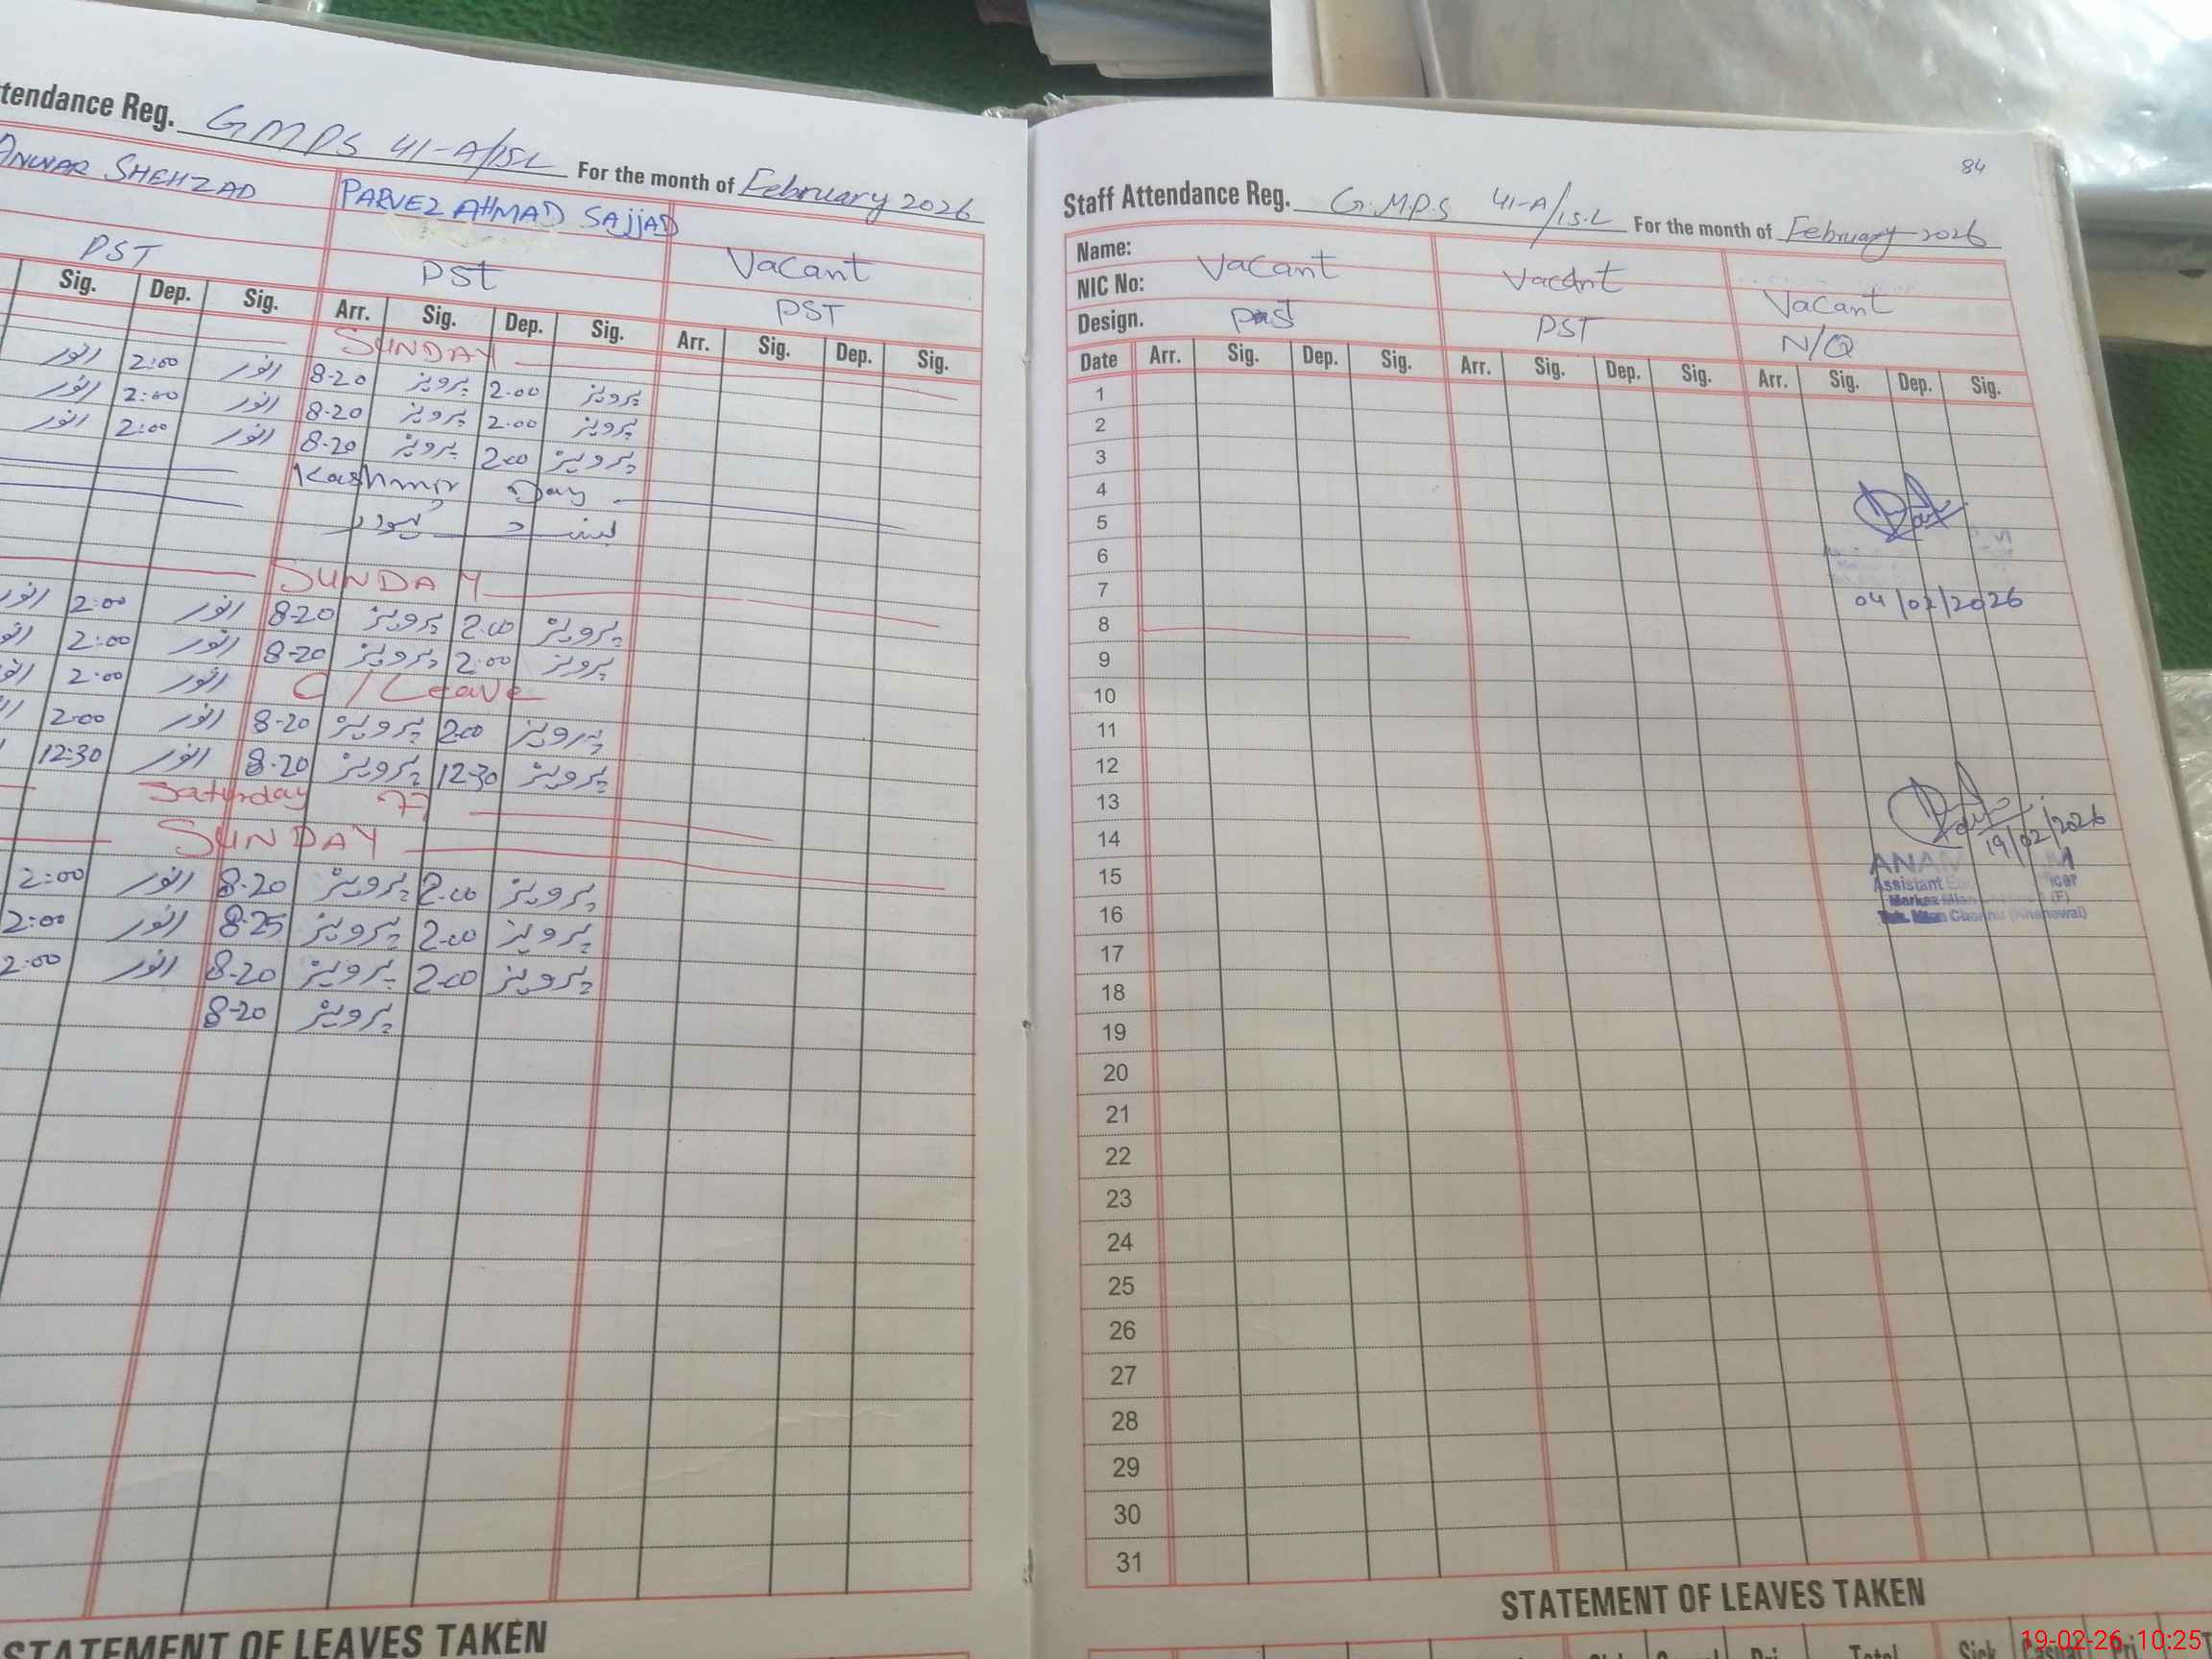 tendance Reg. GMPS 41-A/15-L For the month of February 2026
ANWAR SHEHZAD PARVEZ AHMAD SAJJAD
PST PST Vacant
PST
Sig. Dep. Sig. Arr. Sig. Dep. Sig. Arr. Sig. Dep. Sig.
SUNDAY
انور 2:00 انور 8-20 پرویز 2.00 پرویز
انور 2:00 انور 8-20 پرویز 2.00 پرویز
انور 2:00 انور 8-20 پرویز 2.00 پرویز
Kashmir Day
SUNDAY
انور 2:00 انور 8-20 پرویز 2.00 پرویز
2:00 انور 8-20 پرویز 2:00 پرویز
2:00 انور C/Leave
2:00 انور 8-20 پرویز 2.00 پرویز
12:30 انور 8.20 پرویز 12-30 پرویز
Saturday
SUNDAY
2:00 انور 8.20 پرویز 2.00 پرویز
2:00 انور 8.25 پرویز 2.00 پرویز
2:00 انور 8-20 پرویز 2.00 پرویز
8-20 پرویز
STATEMENT OF LEAVES TAKEN
84
Staff Attendance Reg. G.M.P.S 41-A/15.L For the month of February 2026
Name:
NIC No: Vacant Vacant Vacant
Design. PST N/Q
Date Arr. Sig. Dep. Sig. Arr. Sig. Dep. Sig. Arr. Sig. Dep. Sig.
1
2
3
4
5
6
7
04/02/2026
8
9
10
11
12
13
14
19/02/2026
15
Assistant
16
17
18
19
20
21
22
23
24
25
26
27
28
29
30
31
STATEMENT OF LEAVES TAKEN
Total Sick Casual Pri.
19-02-26, 10:25